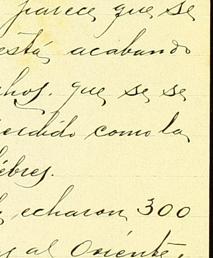 parece que se
está acabando
chos. que se se
erdido como la
ébres.
echaron 300
al Oriente,